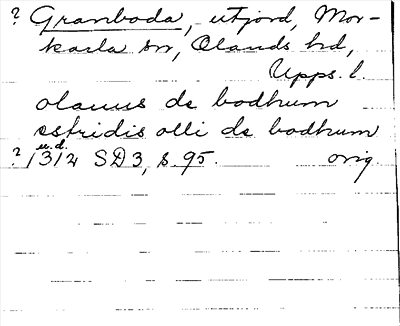 ? Granboda, utjord, Mor-
karla sn, Olands hd,
Upps. l.
olauus de bodhum
estridis olli de bodhum
u.d.
? 1312 SD3, s. 95. orig.